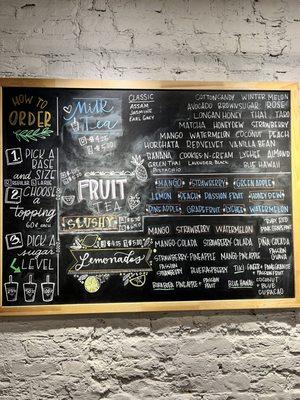 HOW TO
ORDER
1 PICK A
BASE
AND SIZE
REGULAR LARGE
2 CHOOSE
a
topping
60¢ each
3 PICK a
sugar
LEVEL
Milk
Tea
CLASSIC
ASSAM
JASMINE
EARL GREY
COTTONCANDY WINTER MELON
AVOCADO BROWNSUGAR ROSE
LONGAN HONEY THAI TARO
MATCHA HONEYDEW STRAWBERRY
MANGO WATERMELON COCONUT PEACH
HORCHATA REDVELVET VANILLA BEAN
BANANA COOKIES-N-CREAM LYCHEE ALMOND
GREEN THAI LAVENDER BLACK
PISTACHIO BLUE HAWAII
FRUIT
TEA
MANGO STRAWBERRY GREEN APPLE
LEMON PEACH PASSION FRUIT HONEY DEW
PINEAPPLE GRAPEFRUIT LYCHEE WATERMELON
SLUSHY
MANGO STRAWBERRY WATERMELON
PINK GRAPEFRUIT
MANGO COLADA STRAWBERRY COLADA PIÑA COLADA
Lemonades
STRAWBERRY PINEAPPLE MANGO PINEAPPLE
PASSION
GUAVA
PASSION
STRAWBERRY
BLUERASPBERRY TIKI
PASSION
FRUIT
BLUE HAWAII
COCONUT
+ BLUE
CURACAO